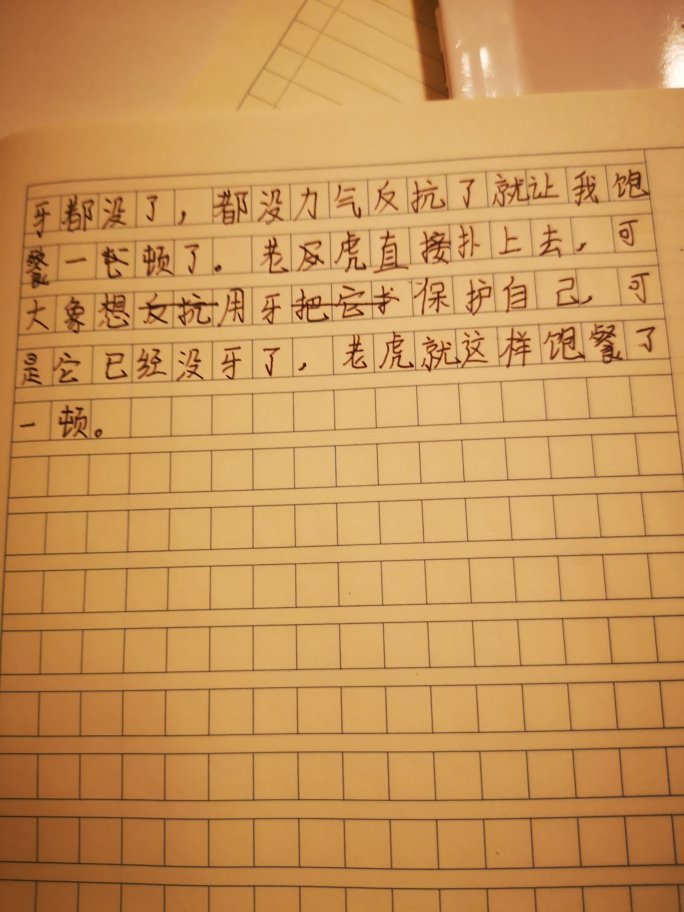 牙都没了，都没力气反抗了就让我饱
餐一顿了。老虎直接扑上去，可
大象想用牙保护自己，可
是它已经没牙了，老虎就这样饱餐了
一顿。